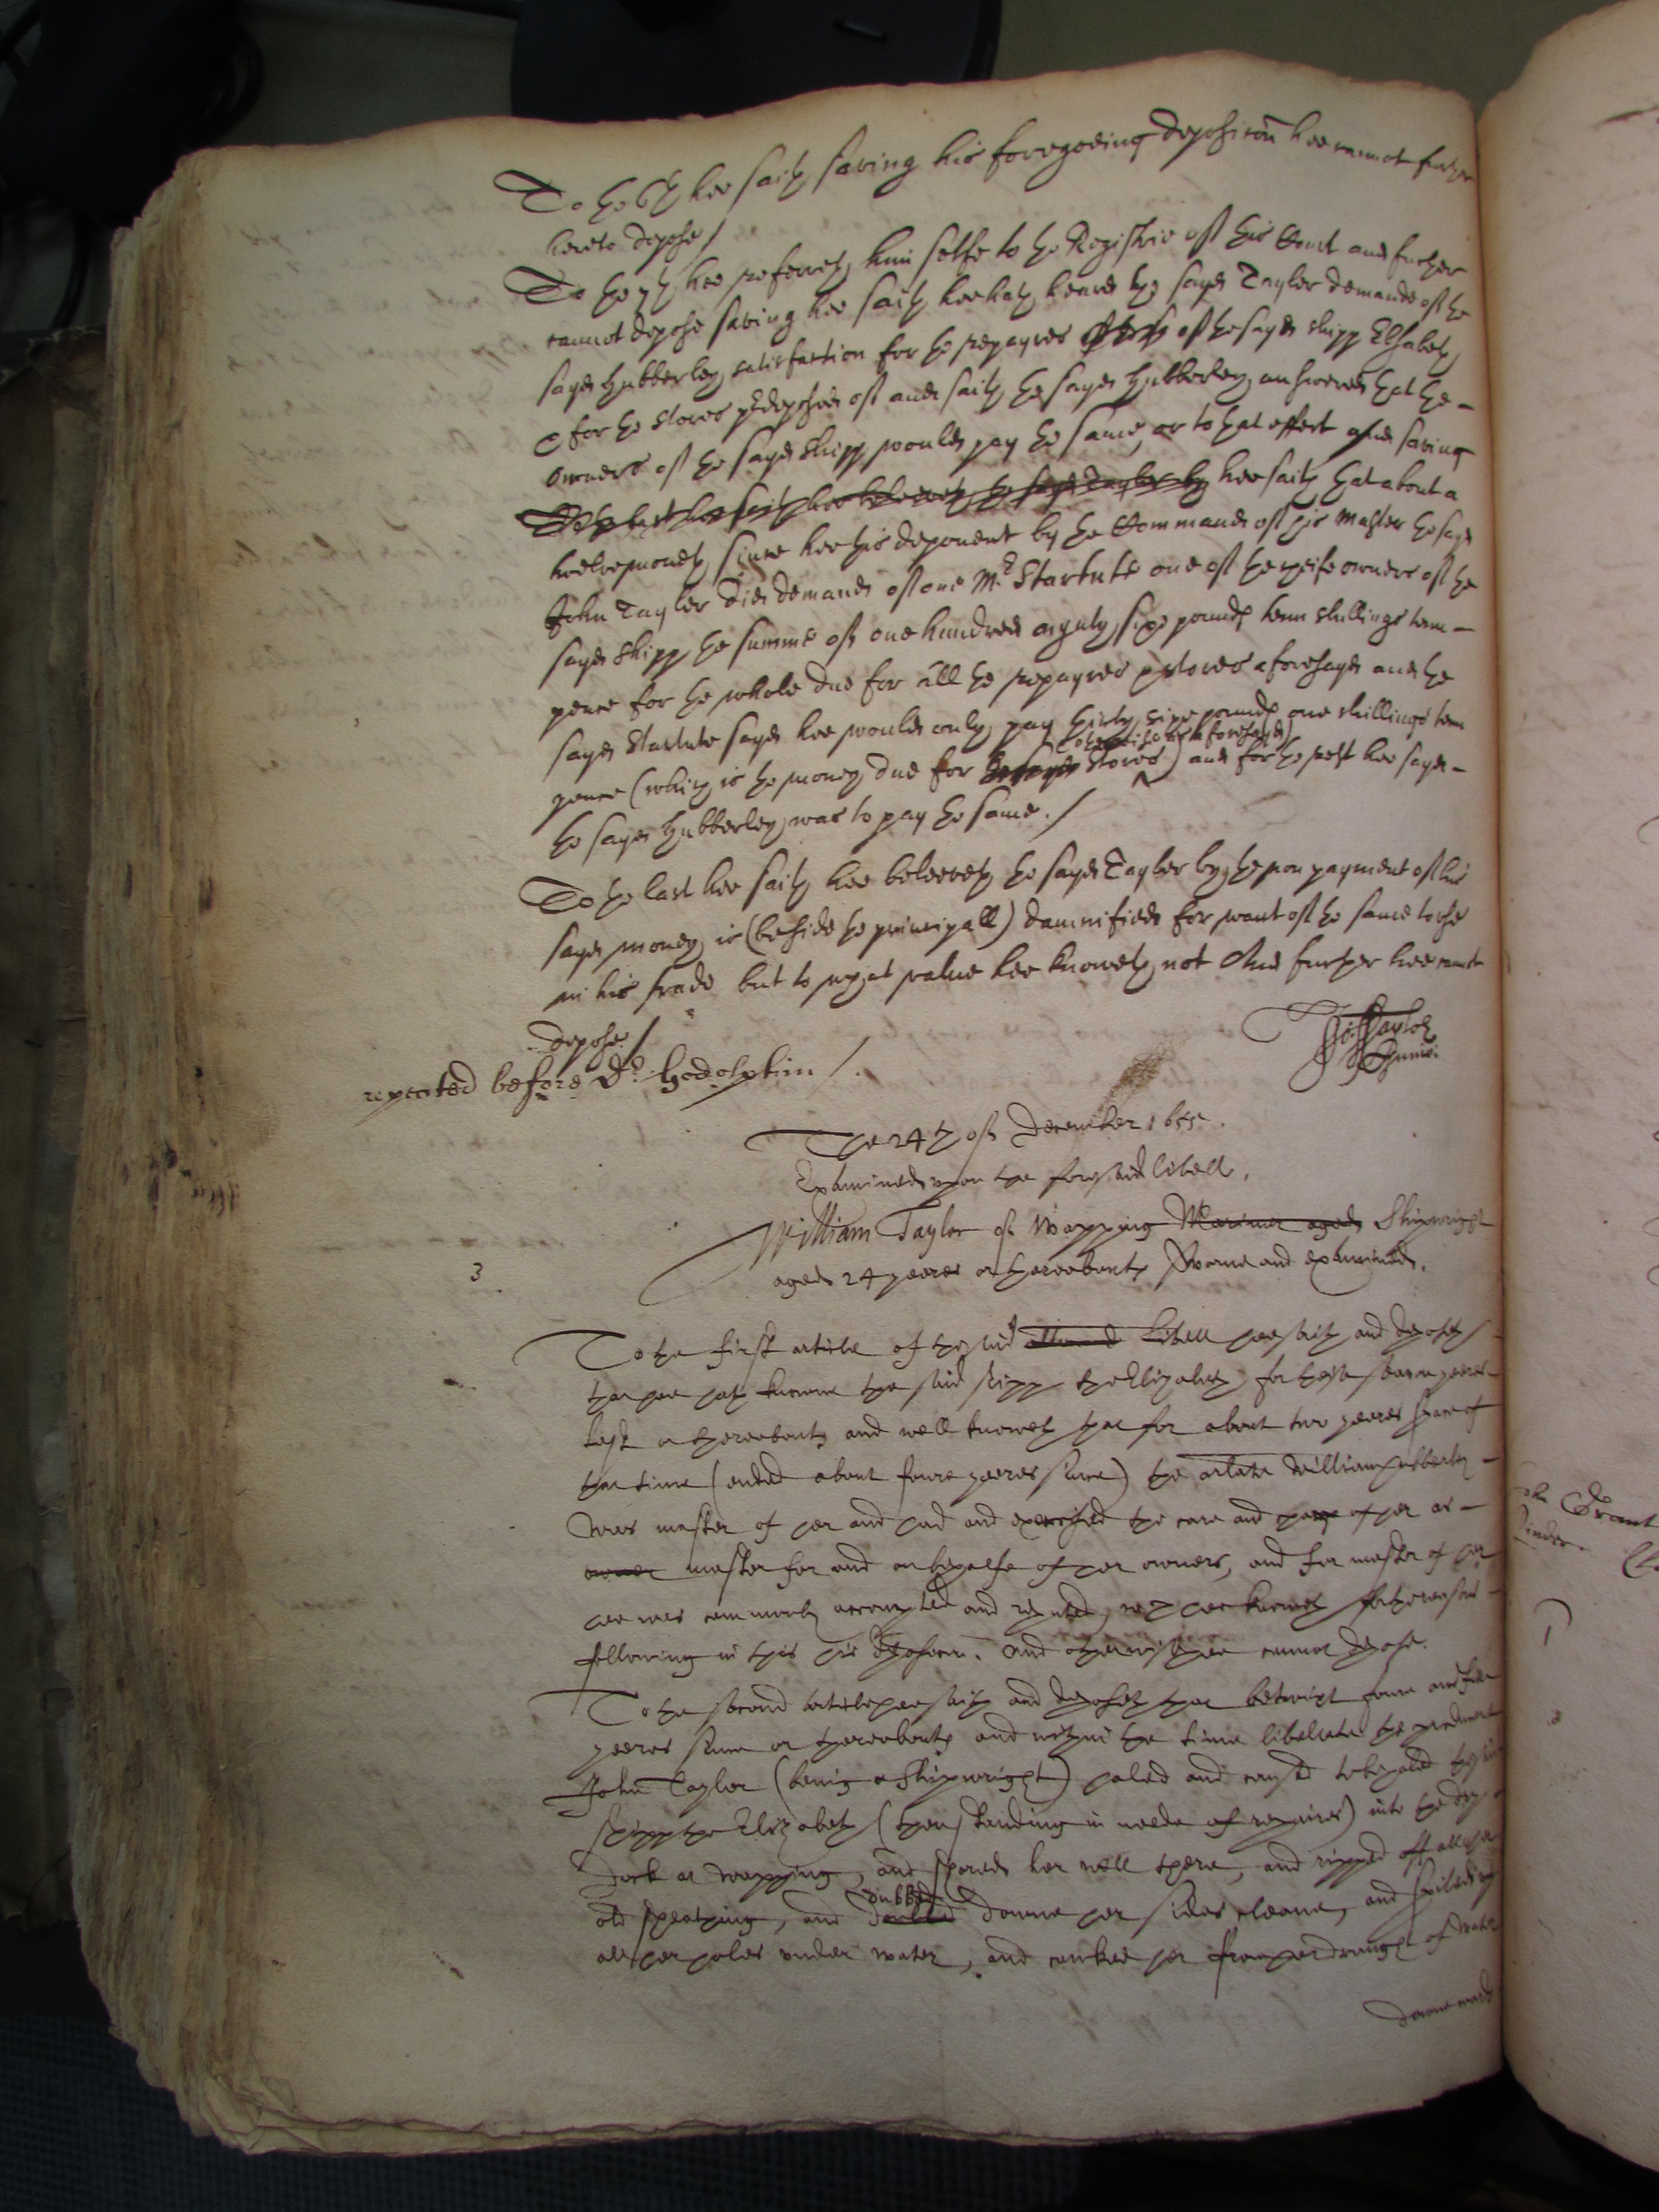 To the 6th hee saith saving his foregoeing deposicon hee cannot further
hereto depose /
To the 7th hee referreth him selfe to the Registrie of this Court and further
cannot depose saving hee saith hee hath heard the sayd Tayler demande of the
sayd Hubberley satisfaction for the repayres of the sayd shipp Elsabeth
& for the stores predeposed of and saith the sayd Hubberley answered that the -
owners of the sayd shipp would pay the same, or to that effect and saving
To the last hee saith hee beleeveth the sayd Tayler by hee saith that about a
twelvemoneth since hee this deponent by the Command of his Master the sayd
John Tayler did demand of one Mr Startute one of the cheife owners of the
sayd shipp the summe of one hundred eighty sixe pounds tenn shillings tenn -
pence for the whole due for all the repayres & stores aforesayd and the
sayd Startute sayd hee would only pay thirty sixe pounds one shillings tenn
pence (which is the money due for the sayd stores) and for the rest hee sayd -
the sayd Hubberley was to pay the same. /
To the last hee saith hee beleeveth the sayd Tayler by the non payment of his
sayd money is (beside the principall) damnified for want of the same to use
in his trade but to what value hee knoweth not And further hee cannot
depose /
repeated before Dr. Godolphin /.
The 24th of December 1655.
Examined upon the foresaid libell.
William Taylor of Wapping Mariner aged Shipwright
aged 24 yeeres or thereabouts sworne and examined.
3
To the first article of the said libell hee saith and deposeth
that hee hath knowne the said shipp the Elizabeth for theise seaven yeeres
last or thereabouts and well knoweth that for about two yeeres space of
that time (ended about foure yeeres since) the arlate William Hubberley -
was master of her and had and exercised the care and charge of her as -
owner master for and on behalfe of her owners, and for master of her
hee was commonly accompted and reputed, which hee knoweth for the reasons
following in this his deposicon. And otherwise hee cannot depose.
To the second article hee saith and deposeth that betwixt foure and five
yeeres since or thereabouts and within the time libellate the producent
John Taylor (being a Shipwright) haled and caused to be haled the said
shipp the Elizabeth (then standing in neede of repaires) into the dry -
dock at Wapping, and shored her well there, and ripped off all her
old sheathing, and dubbed downe her sides cleane, and spiled up
all her holes under water, and caulked her from her draught of water
downe ward
John Grant